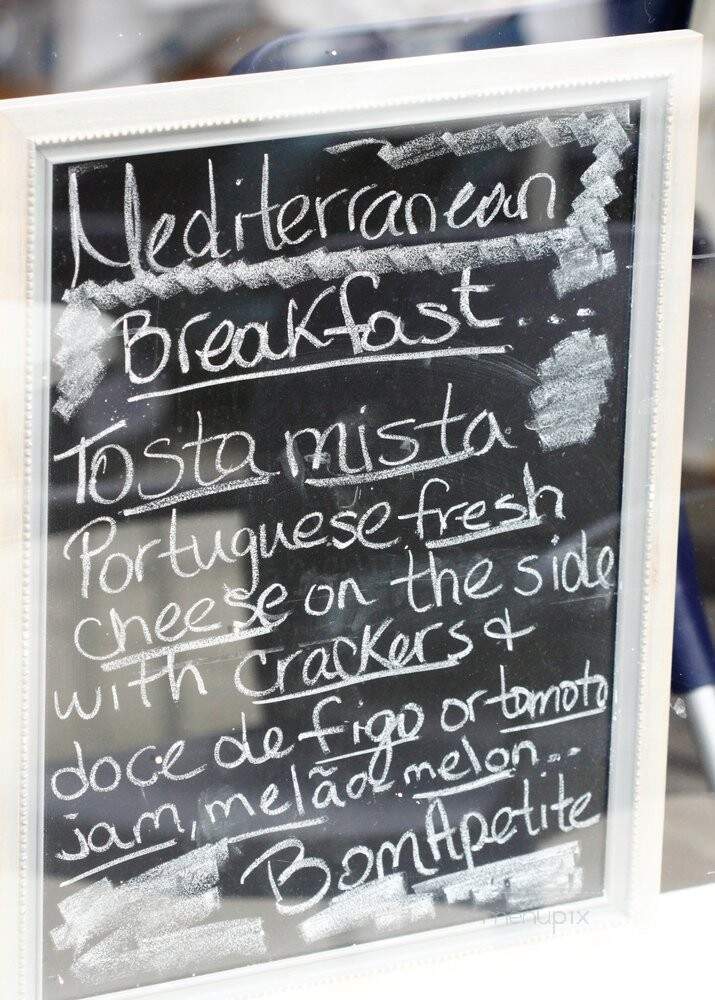 Mediterranean
Breakfast...
Tosta mista
Portuguese fresh
cheese on the side
with crackers &
doce de figo or tomoto
jam, melão-melon...
BomApetite
menupix